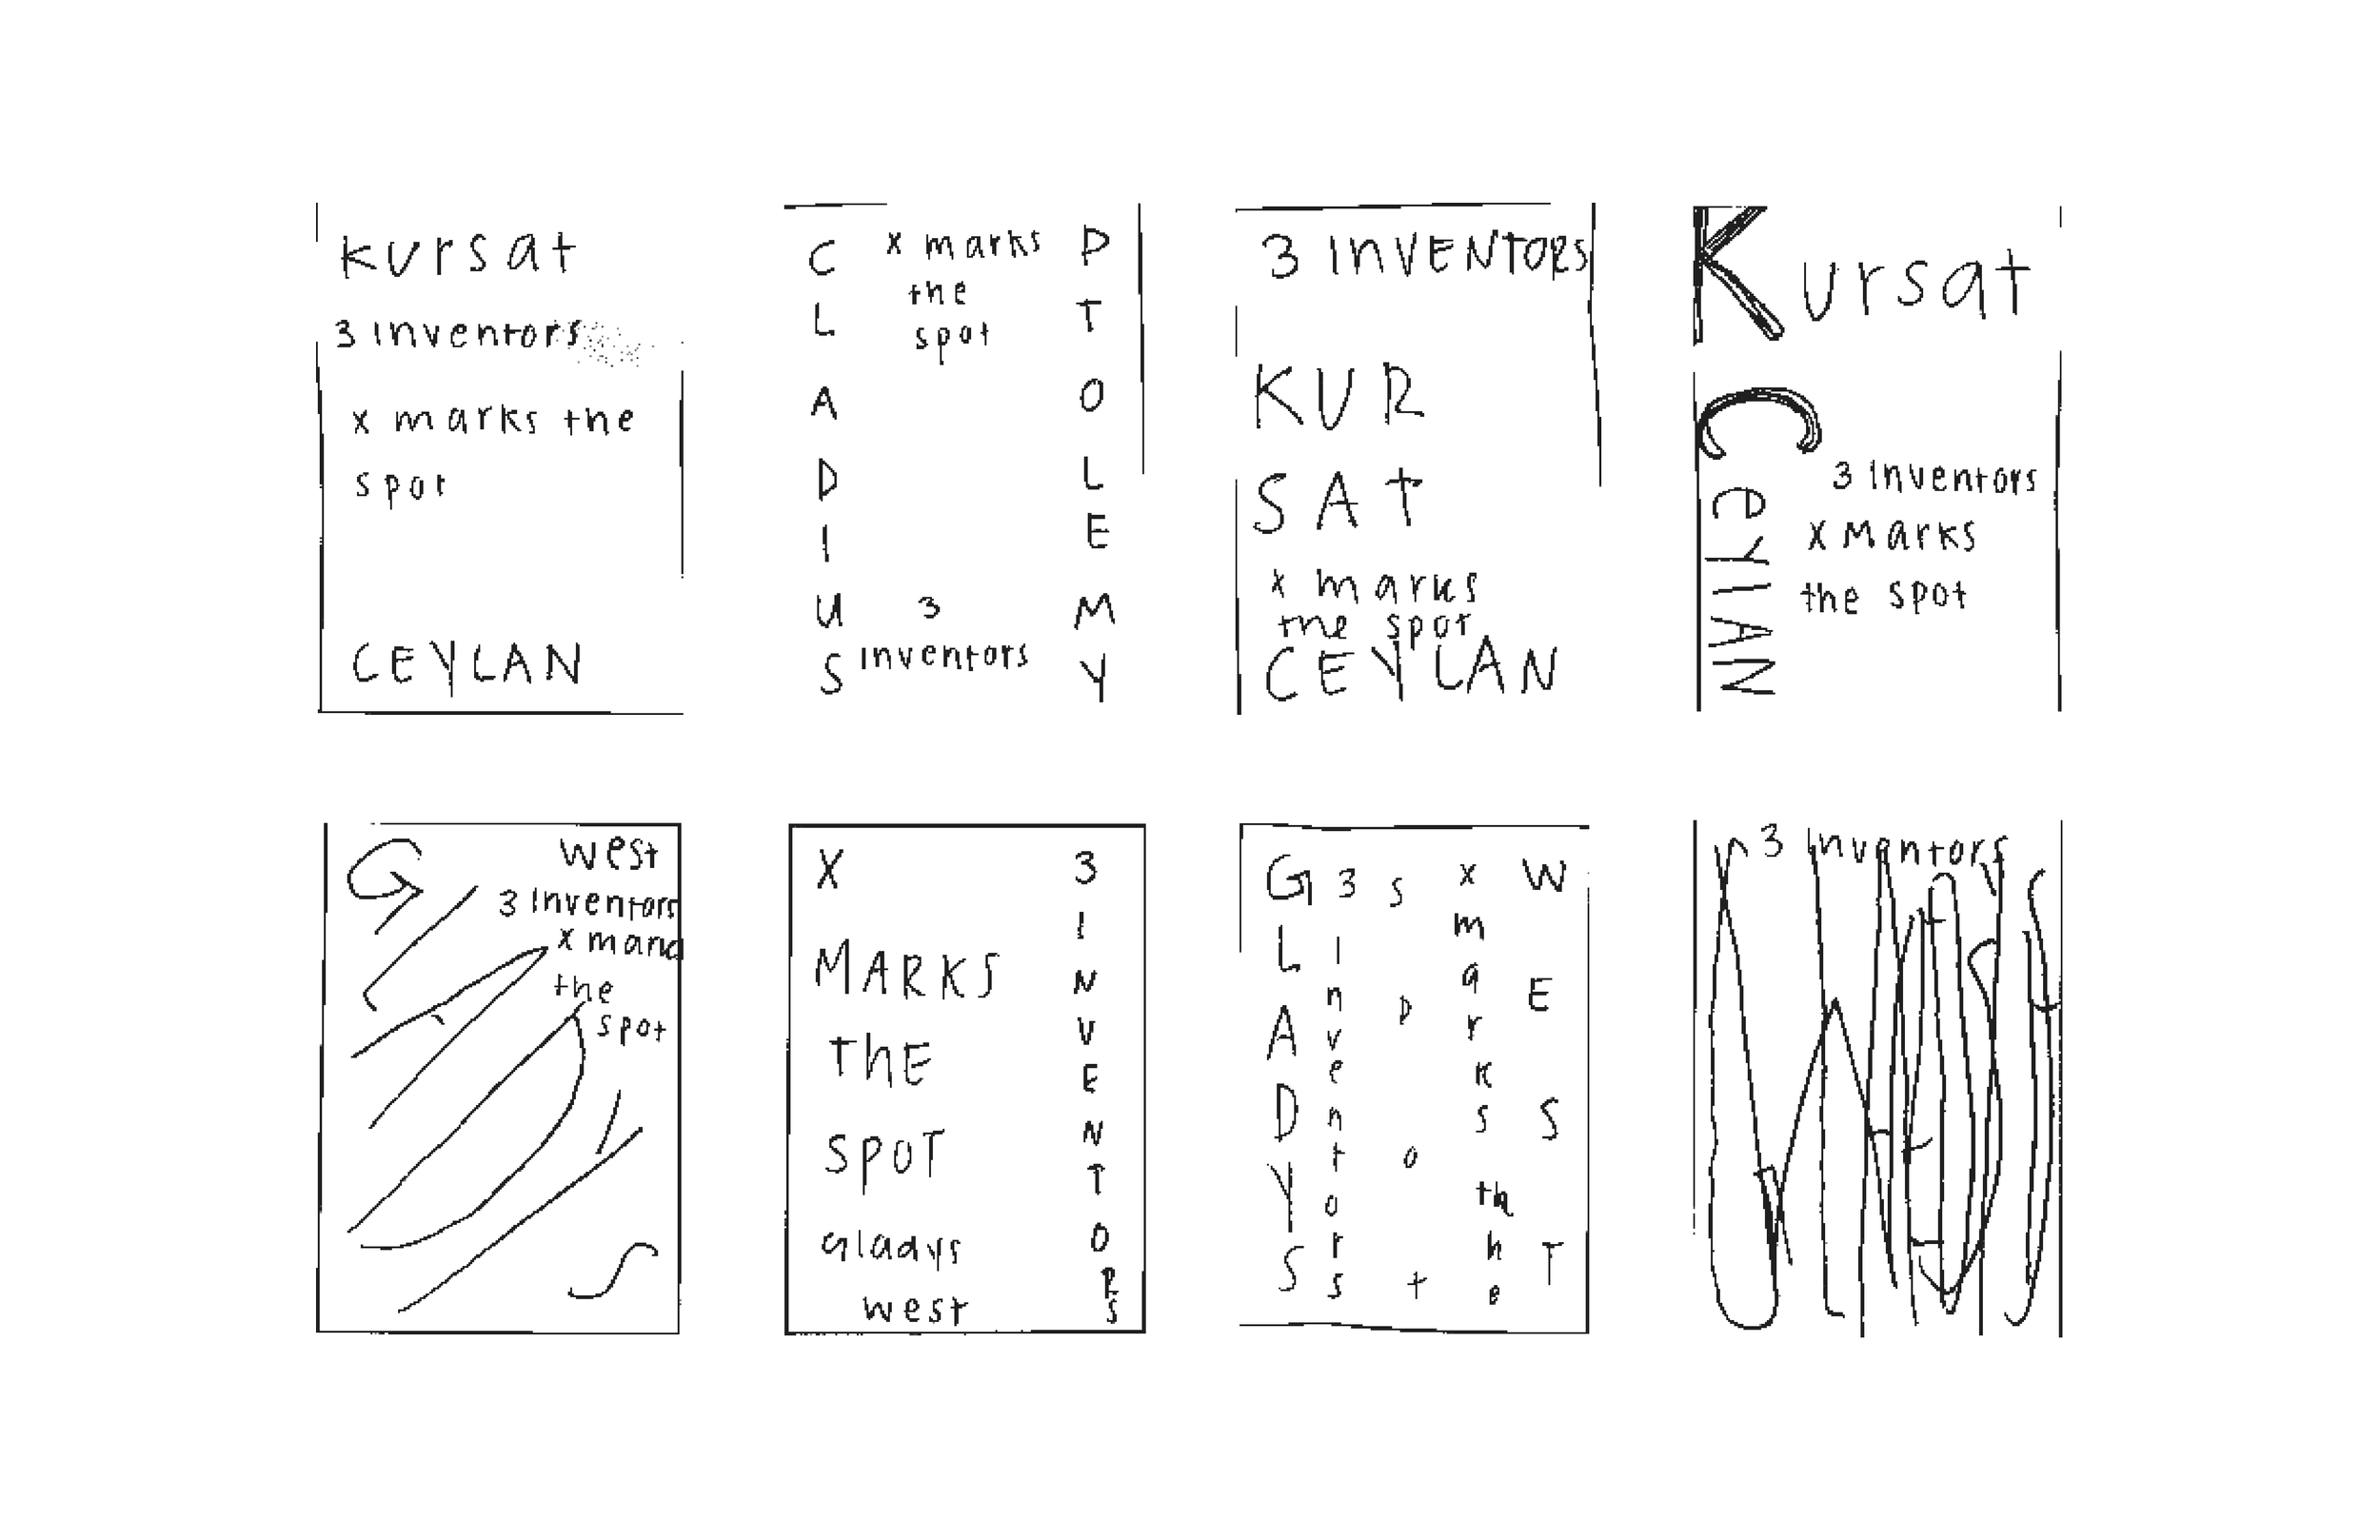 Kursat
3 inventors
x marks the
spot
CEYLAN
CLADIUS
x marks
the
spot
3
inventors
PTOLEMY
3 INVENTORS
KUR
SAT
x marks
the spot
CEYLAN
Kursat
CeylAN
3 Inventors
x Marks
the spot
G
west
3 Inventors
the
spot
S
X
MARKS
THE
SPOT
Gladys
west
3 INVENTORS
GLADYS
3 Inventors
spot
x marks th
he
WEST
3 Inventors